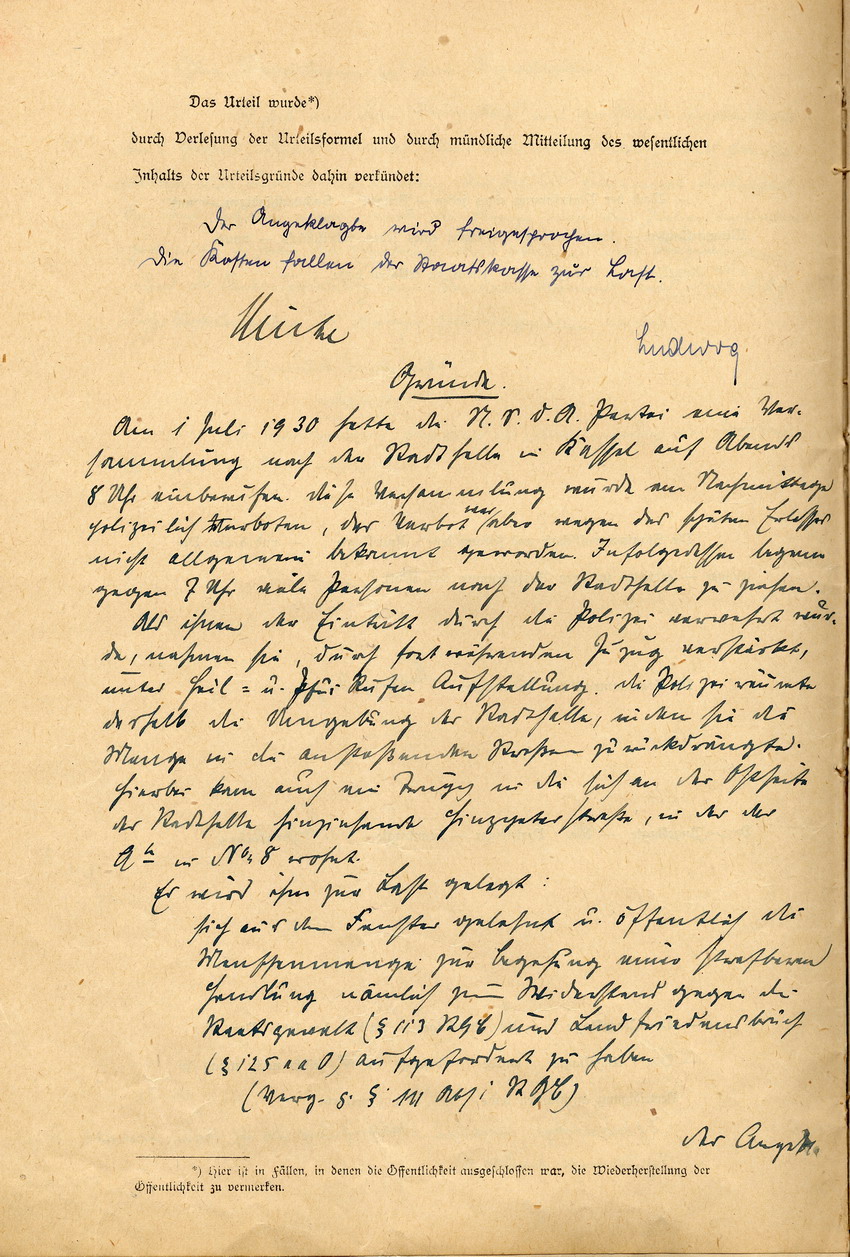 Das Urteil wurde*)
durch Verlesung der Urteilsformel und durch mündliche Mitteilung des wesentlichen
Inhalts der Urteilsgründe dahin verkündet:
Der Angeklagte wird freigesprochen.
Die Kosten fallen der Staatskasse zur Last.
Ludwig
Gründe.
Am 1 Juli 1930 hatte die N. S. D. A. Partei eine Ver-
sammlung nach der Stadthalle in Kassel auf Abends
8 Uhr einberufen. Diese Versammlung wurde am Nachmittage
polizeilich verboten, das Verbot war aber wegen des späten Erlasses
nicht allgemein bekannt geworden. Infolgedessen begann
gegen 7 Uhr viele Personen nach der Stadthalle zu ziehen.
Als ihnen der Eintritt durch die Polizei verwehrt wur-
de, nahmen sie, durch fortwährenden Zuzug verstärkt,
unter Heil = u. Pfui Rufen Aufstellung. Die Polizei räumte
deshalb die Umgebung der Stadthalle, indem sie die
Menge in die anstoßenden Straßen zurückdrängte.
Hierbei kam auch ein in die sich an der Ostseite
der Stadthalle hinziehende straße, in der der
in No 8 wohnt.
Es wird ihm zur Last gelegt:
sich aus dem Fenster gelehnt u. öffentlich die
Menschenmenge zur Begehung einer strafbaren
Handlung nämlich zum Widerstand gegen die
Staatsgewalt (§ 113 StGB) und Landfriedensbruch
(§ 125 a a O) aufgefordert zu haben
(Verg. g. § 111 Abs 1 StGB)
der Angekl.
*) Hier ist in Fällen, in denen die Öffentlichkeit ausgeschlossen war, die Wiederherstellung der
Öffentlichkeit zu vermerken.